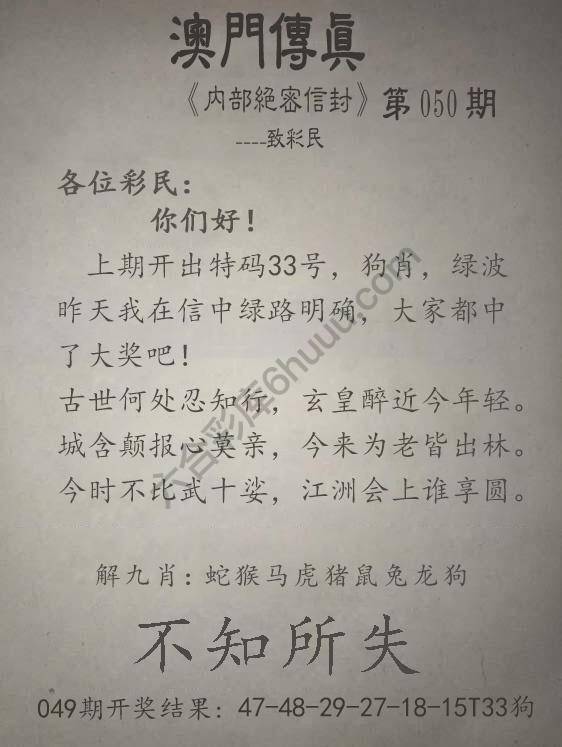 澳門傳眞
《内部絕密信封》第050期
----致彩民
各位彩民：
你们好！
上期开出特码33号，狗肖，绿波
昨天我在信中绿路明确，大家都中
了大奖吧！
古世何处忍知行，玄皇醉近今年轻。
城含颠报心莫亲，今来为老皆出林。
今时不比武十娑，江洲会上谁享圆。
解九肖：蛇猴马虎猪鼠兔龙狗
不知所失
049期开奖结果：47-48-29-27-18-15T33狗
六合彩库6huuu.com